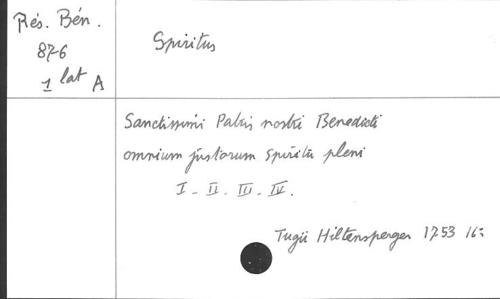 Rés. Bén.
876
1 lat A
Spiritus
Sanctissimi Patris nostri Benedicti
omnium justorum spiritu pleni
I - II - III - IV.
Tugii Hiltensperger 1753 16: